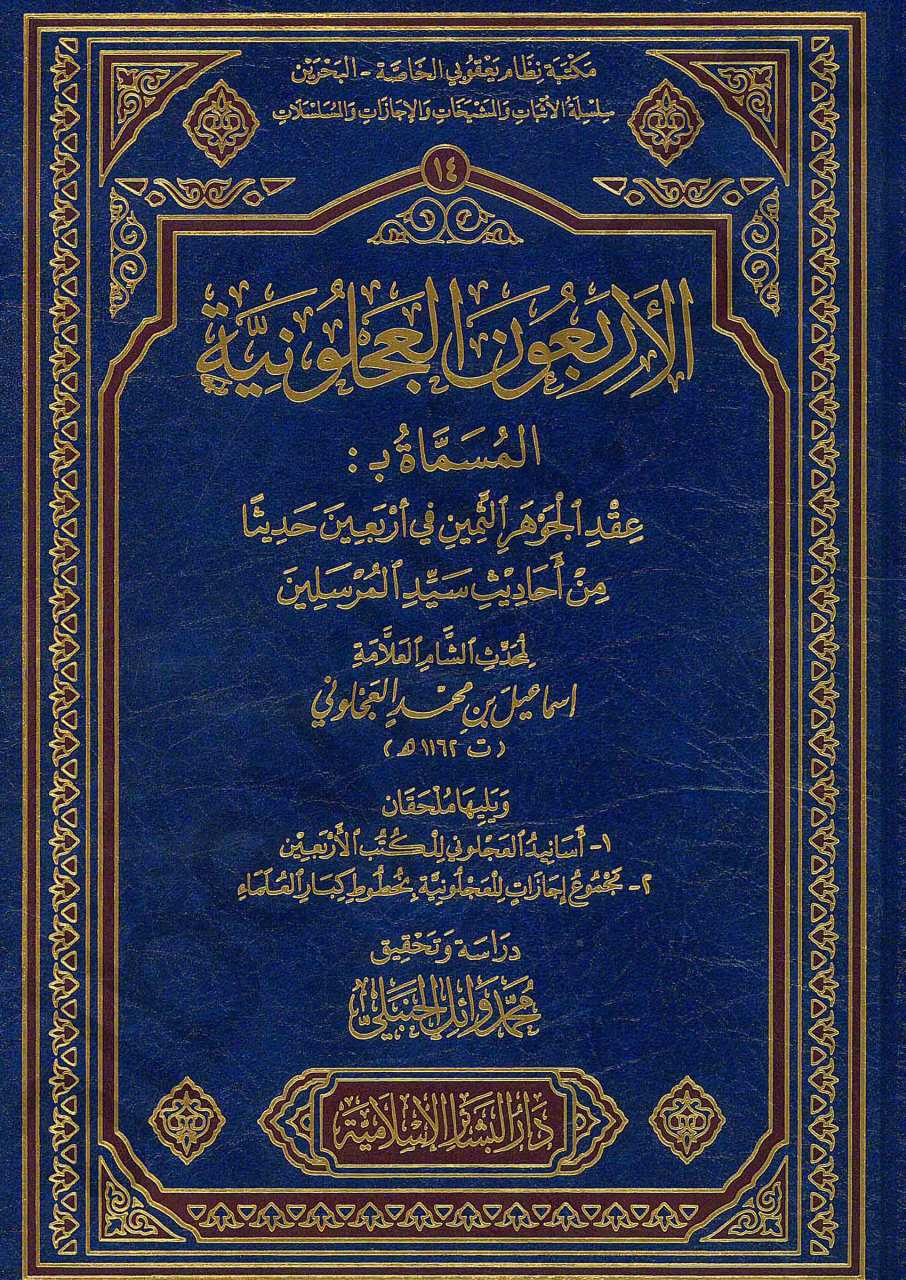 مكتبة نظام يعقوبي الخاصة - البحرين
سلسلة الأثبات والمشيخات والإجازات والمسلسلات
١٤
الأَرْبَعُونَ العَجْلُونِيَّةِ
المُسَمَّاةُ بـ :
عِقْدِ الجَوْهَرِ الثَّمِينِ فِي أَرْبَعِينَ حَدِيثًا
مِنْ أَحَادِيْثِ سَيِّدِ المُرْسَلِينَ
لمُحَدِّثِ الشَّامِ العَلَّامَةِ
اسماعيل بن محمد العجلوني
(ت ١١٦٢ هـ)
وَيَلِيهَا مُلْحَقَان
١- أَسَانِيدُ العَجْلُوني لِلْكُتُبِ الأَرْبَعِيْنَ
٢- مَجْمُوعُ إجَازَاتٍ لِلعَجْلُونِيَّةِ بِخُطُوطِ كِبَارِ العُلَمَاءِ
دِرَاسَة وَتَحْقِيق
مُحَمَّد وَائِل الحَنْبَلِيّ
دَارُ البَشَائِرِ الإِسْلَامِيَّة